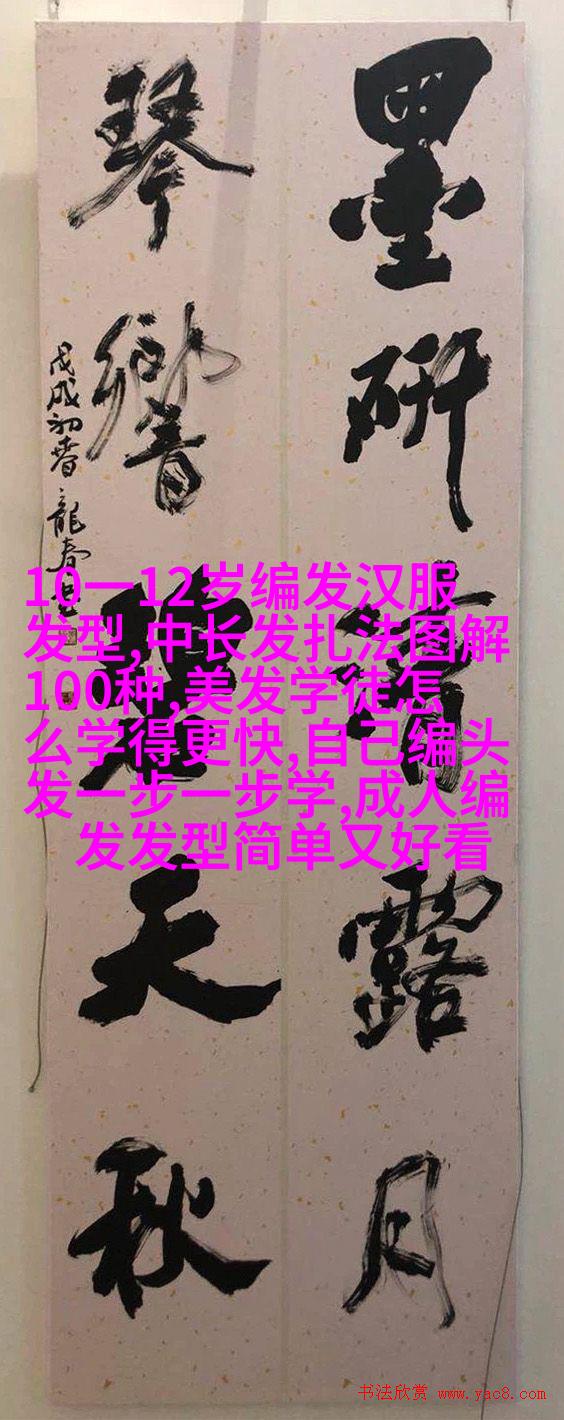 墨研清露月
琴響碧天秋
戊戌初春 龍春
10一12岁编发汉服
发型,中长发扎法图解
100种,美发学徒怎
么学得更快,自己编头
发一步一步学,成人编
发发型简单又好看
书法欣赏 www.yac8.com